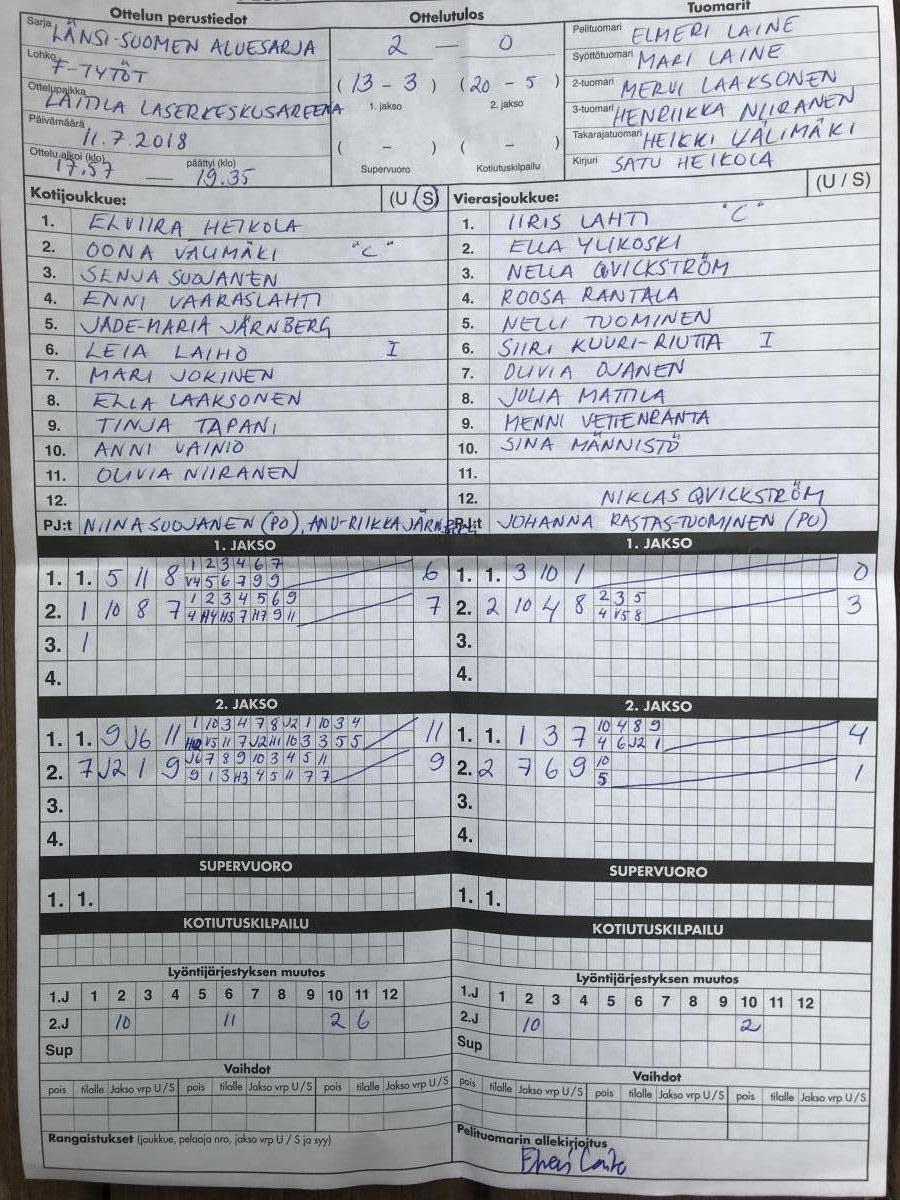 Ottelun perustiedot
Ottelutulos
Tuomarit
Sarja LÄNSI-SUOMEN ALUESARJA
Lohko F-TYTÖT
Ottelupaikka LAITILA LASERKESKUSAREENA
Päivämäärä 11.7.2018
Ottelu alkoi (klo) 17.57 — päättyi (klo) 19.35
2 — 0
(13 - 3) (20 - 5)
1. jakso 2. jakso
( - ) ( - )
Supervuoro Kotiutuskilpailu
Pelituomari ELMERI LAINE
Syöttötuomari MARI LAINE
2-tuomari MERVI LAAKSONEN
3-tuomari HENRIIKKA NIIRANEN
Takarajatuomari HEIKKI VÄLIMÄKI
Kirjuri SATU HEIKOLA
Kotijoukkue: (U / S)
1. ELVIIRA HEIKOLA
2. OONA VÄLIMÄKI "C"
3. SENJA SUOJANEN
4. ENNI VAARASLAHTI
5. JADE-MARIA JÄRNBERG
6. LEIA LAIHO I
7. MARI JOKINEN
8. ELLA LAAKSONEN
9. TINJA TAPANI
10. ANNI VAINIO
11. OLIVIA NIIRANEN
12.
PJ:t NIINA SUOJANEN (PO), ANU-RIIKKA
Vierasjoukkue: (U / S)
1. IIRIS LAHTI "C"
2. ELLA YLIKOSKI
3. NELLA QVICKSTRÖM
4. ROOSA RANTALA
5. NELLI TUOMINEN
6. SIIRI KUURI-RIUTTA I
7. OLIVIA OJANEN
8. JULIA MATTILA
9. MENNI VETTENRANTA
10. SINA MÄNNISTÖ
11.
12. NIKLAS QVICKSTRÖM
PJ:t JOHANNA RASTAS-TUOMINEN (PO)
1. JAKSO
1. 1. 5 11 8
1 2 3 4 6 7
V4 5 6 7 9 9
6
2. 1 10 8 7
1 2 3 4 5 6 9
7
3. 1
4.
1. JAKSO
1. 1. 3 10 1
0
2. 2 10 4 8
2 3 5
4 V5 8
3
3.
4.
2. JAKSO
1. 1. 9 J6 11
1 10 3 4 7 8 J2 1 10 3 4
11
2. 7 J2 1 9
J6 7 8 9 10 3 4 5 11
9 1 3 H3 4 5 11 7 7
9
3.
4.
2. JAKSO
1. 1. 1 3 7
10 4 8 9
4 6 J2 1
4
2. 2 7 6 9
10
5
1
3.
4.
SUPERVUORO
1. 1.
SUPERVUORO
1. 1.
KOTIUTUSKILPAILU
KOTIUTUSKILPAILU
Lyöntijärjestyksen muutos
1.J 1 2 3 4 5 6 7 8 9 10 11 12
2.J 10 11 2 6
Sup
Lyöntijärjestyksen muutos
1.J 1 2 3 4 5 6 7 8 9 10 11 12
2.J 10 2
Sup
Vaihdot
pois tilalle Jakso vrp U / S pois tilalle Jakso vrp U / S pois tilalle Jakso vrp U / S
Vaihdot
pois tilalle Jakso vrp U / S pois tilalle Jakso vrp U / S pois tilalle Jakso vrp U / S
Rangaistukset (joukkue, pelaaja nro, jakso vrp U / S ja syy)
Pelituomarin allekirjoitus